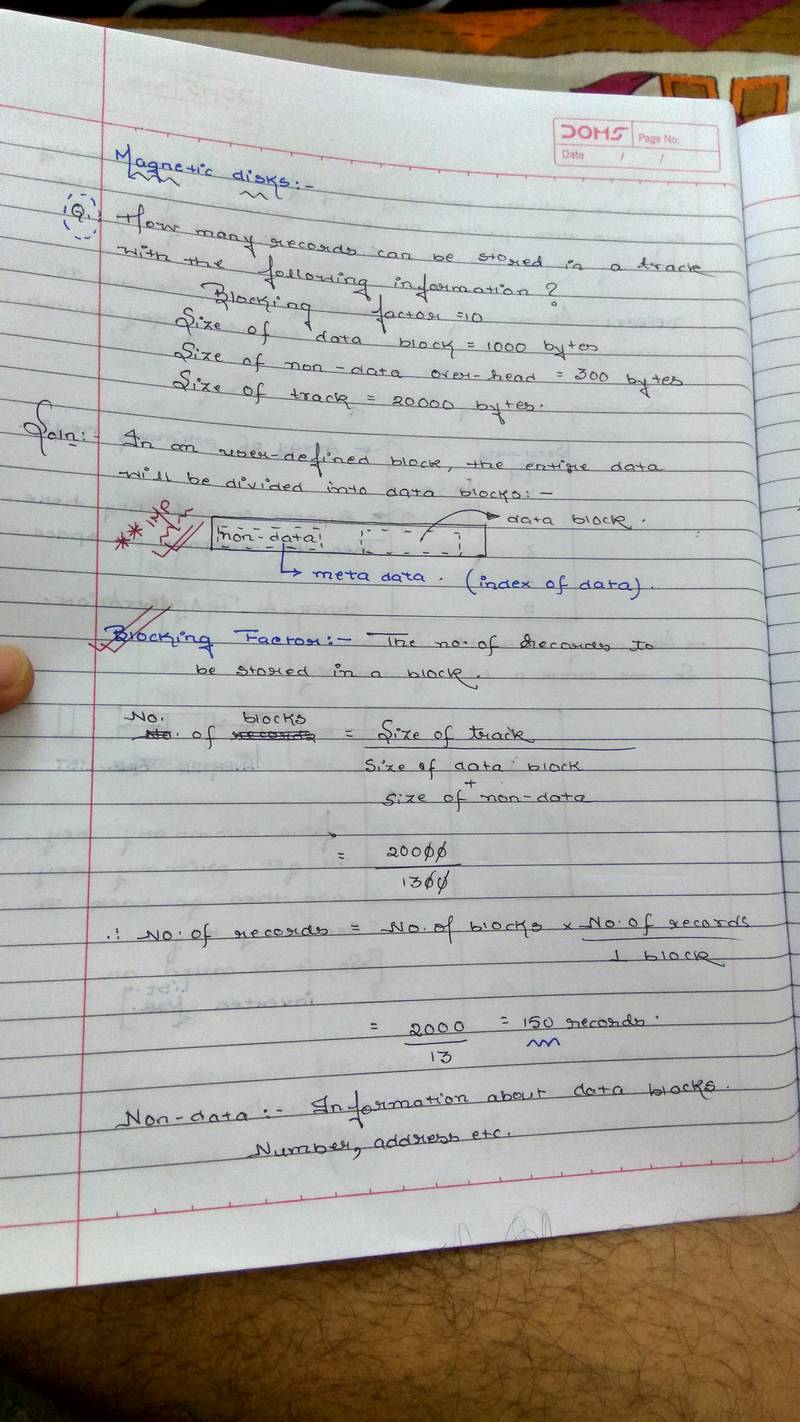 DOMS
Page No.
Date / /
Magnetic disks:-
Q. How many records can be stored in a track
with the following information?
Blocking factor =10
Size of data block = 1000 bytes
Size of non-data over-head = 300 bytes
Size of track = 20000 bytes.
Soln:- In an user-defined block, the entire data
will be divided into data blocks:-
** imp
non-data
data block.
meta data. (index of data).
Blocking Factor:- The no. of records to
be stored in a block.
No. blocks
No. of records = Size of track
Size of data block
+
size of non-data
= 20000
1300
∴ No. of records = No. of blocks x No. of records
1 block
= 2000 = 150 records.
13
Non-data:- Information about data blocks.
Number, address etc.